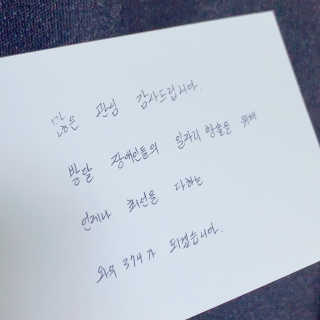 많은 관심 감사드립니다.
발달 장애인들의 일자리 창출을 위해
언제나 최선을 다하는
되겠습니다.